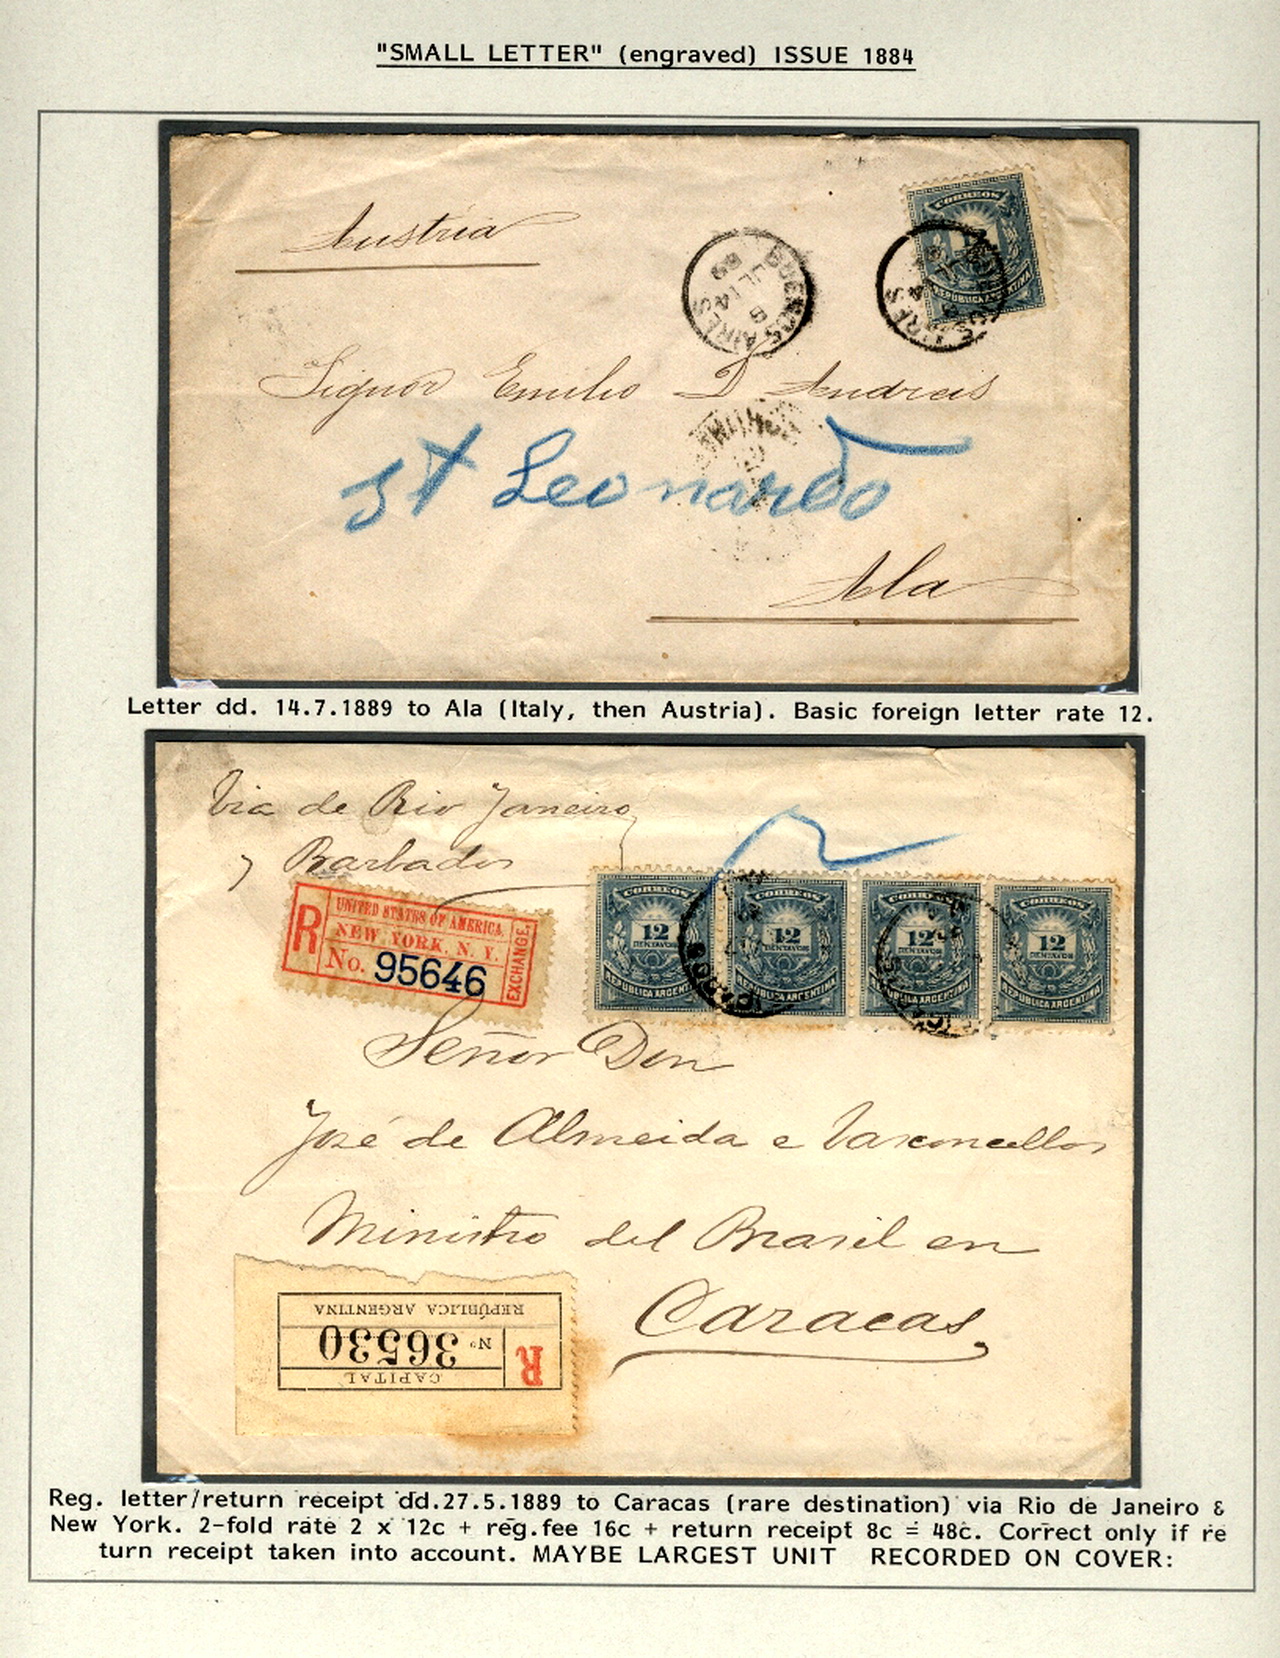 "SMALL LETTER" (engraved) ISSUE 1884
Austria
CORREOS
REPUBLICA ARGENTINA
BUENOS AIRES
JL 14
89
BUENOS AIRES
Signor Emilio D Andreis
St Leonardo
Ala
Letter dd. 14.7.1889 to Ala (Italy, then Austria). Basic foreign letter rate 12.
Via de Rio Janeiro
y Barbados
R
UNITED STATES OF AMERICA.
NEW YORK, N. Y.
No. 95646
EXCHANGE.
CORREOS
12
CENTAVOS
REPUBLICA ARGENTINA
CORREOS
12
CENTAVOS
REPUBLICA ARGENTINA
CORREOS
12
CENTAVOS
REPUBLICA ARGENTINA
CORREOS
12
CENTAVOS
REPUBLICA ARGENTINA
Señor Don
José de Almeida e Vasconcellos
Ministro del Brasil en
Caracas.
CAPITAL
R
Nº 36530
REPÚBLICA ARGENTINA
Reg. letter/return receipt dd.27.5.1889 to Caracas (rare destination) via Rio de Janeiro &
New York. 2-fold rate 2 x 12c + reg.fee 16c + return receipt 8c = 48c. Correct only if re
turn receipt taken into account. MAYBE LARGEST UNIT RECORDED ON COVER: